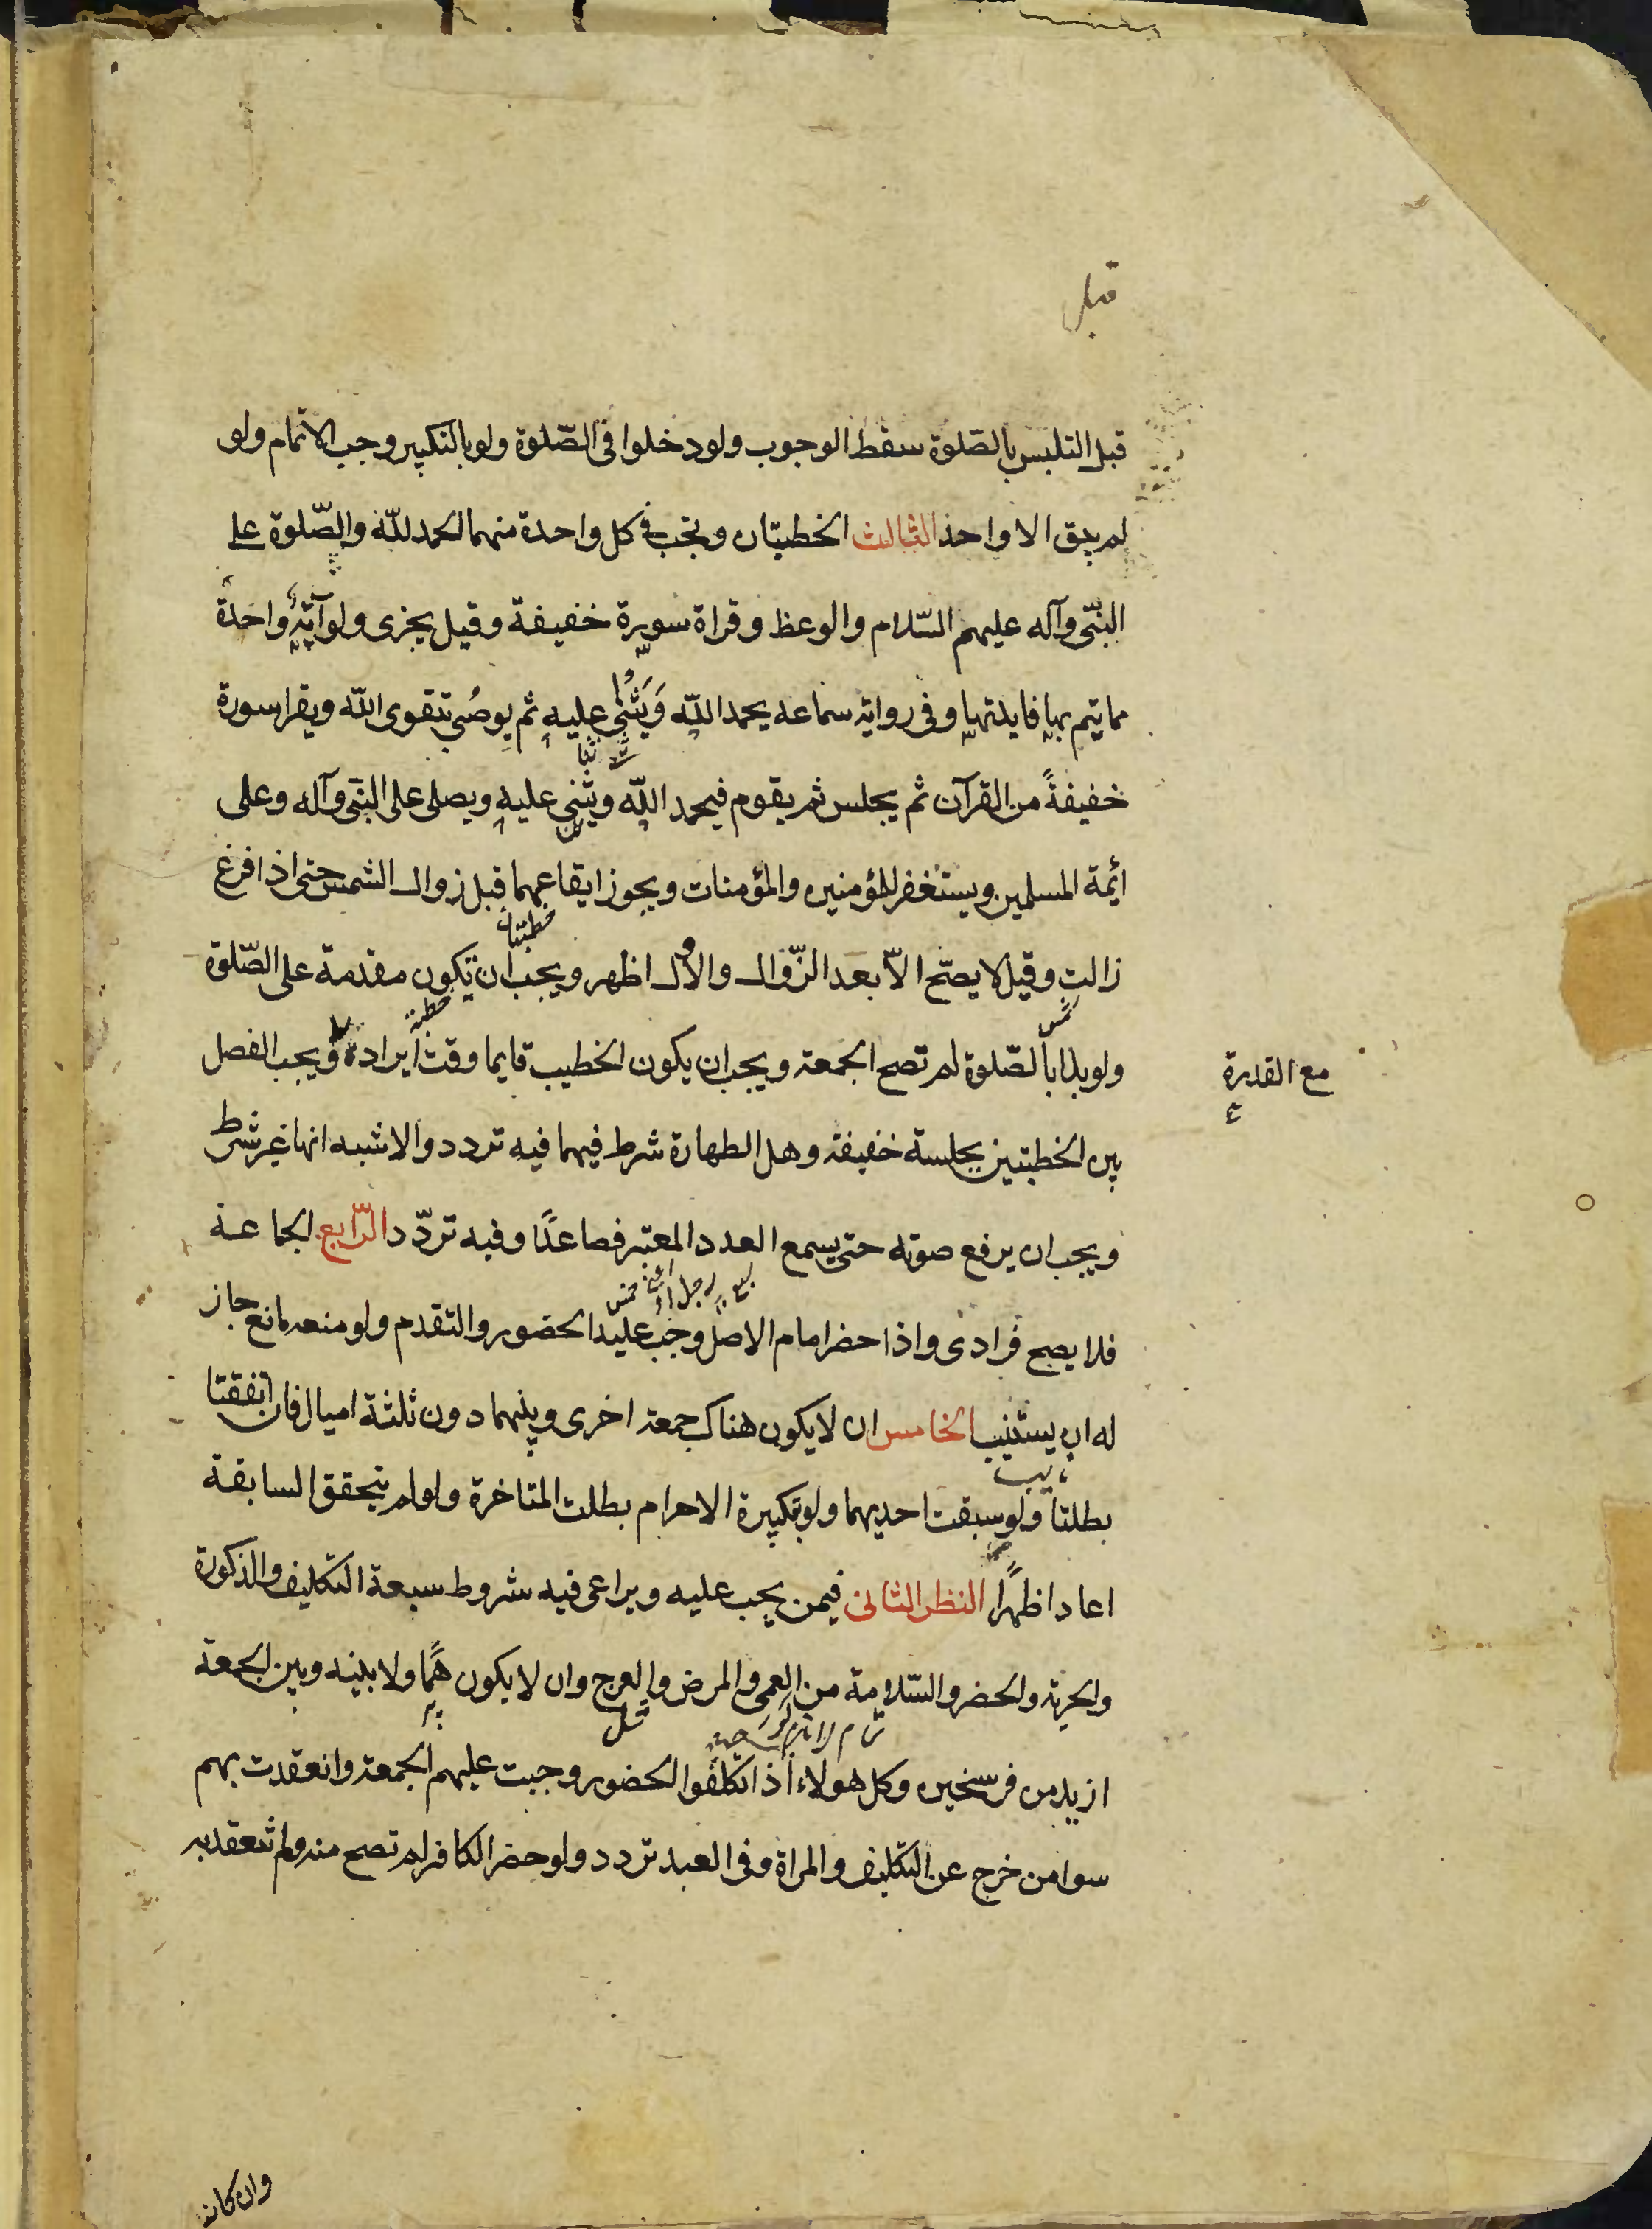 قبل
قبل التلبس بالصّلوة سقط الوجوب ولو دخلوا فى الصّلوة ولو بالتكبير وجب الاتمام ولو
لم يبق الا واحد الثالث الخطبتان ويجب فى كل واحدة منهما الحمد للّه والصّلوة على
النبّى وآله عليهم السّلام والوعظ وقراة سورة خفيفة وقيل يجزى ولو آيةٌ واحدة
مما يتم بها فايدتها وفى رواية سماعه يحمد اللّه وَيَثنْى عليه ثم يوصُي بتقوى اللّه ويقرا سورة
خفيفةً من القرآن ثم يجلس ثم يقوم فيحمد اللّه ويثنى عليه ويصلى على النبّى وآله وعلى
ائمة المسلمين ويستغفر للمؤمنين والمؤمنات ويجوز ايقاعهما قبل زوال الشمس حتى اذا فرغ
خطبتان
زالت وقيل لا يصّح الاّ بعد الزّوال والاول اظهر ويجب ان تكون مقدمة على الصّلوة
شمس
خطبة
ولو بدا بالصّلوة لم تصح الجمعة ويجب ان يكون الخطيب قايما وقت ايراده ويجب الفصل
مع القدرة
بين الخطبتين بجلسة خفيفة وهل الطهارة شرط فيهما فيه تردد والاشبه انها غير شرط
ويجب ان يرفع صوته حتى يسمع العدد المعتبر فصاعدًا وفيه تردّد الرّابع الجماعة
فلا يصح فرادى واذا حضر امام الاصل وجب عليه الحضور والتقدم ولو منعه مانع جاز
له ان يستنيب الخامس ان لا يكون هناك جمعة اخرى وبينهما دون ثلثة اميال فان اتفقتا
بطلتا ولو سبقت احديهما ولو بتكبيرة الاحرام بطلت المتاخرة ولو لم يتحقق السابقة
اعادا ظهرًا النظر الثانى فيمن يجب عليه ويراعى فيه شروط سبعة التكليف والذكورة
والحرية والحضر والسّلامة من العمى والمرض والعرج وان لا يكون همًّا ولا بينه وبين الجمعة
ازيد من فرسخين وكل هولاء اذا تكلفوا الحضور وجبت عليهم الجمعة وانعقدت بهم
سوا من خرج عن التكليف والمراة وفى العبد تردد ولو حضر الكافر لم تصح منه ولم تنعقد به
وان كانت